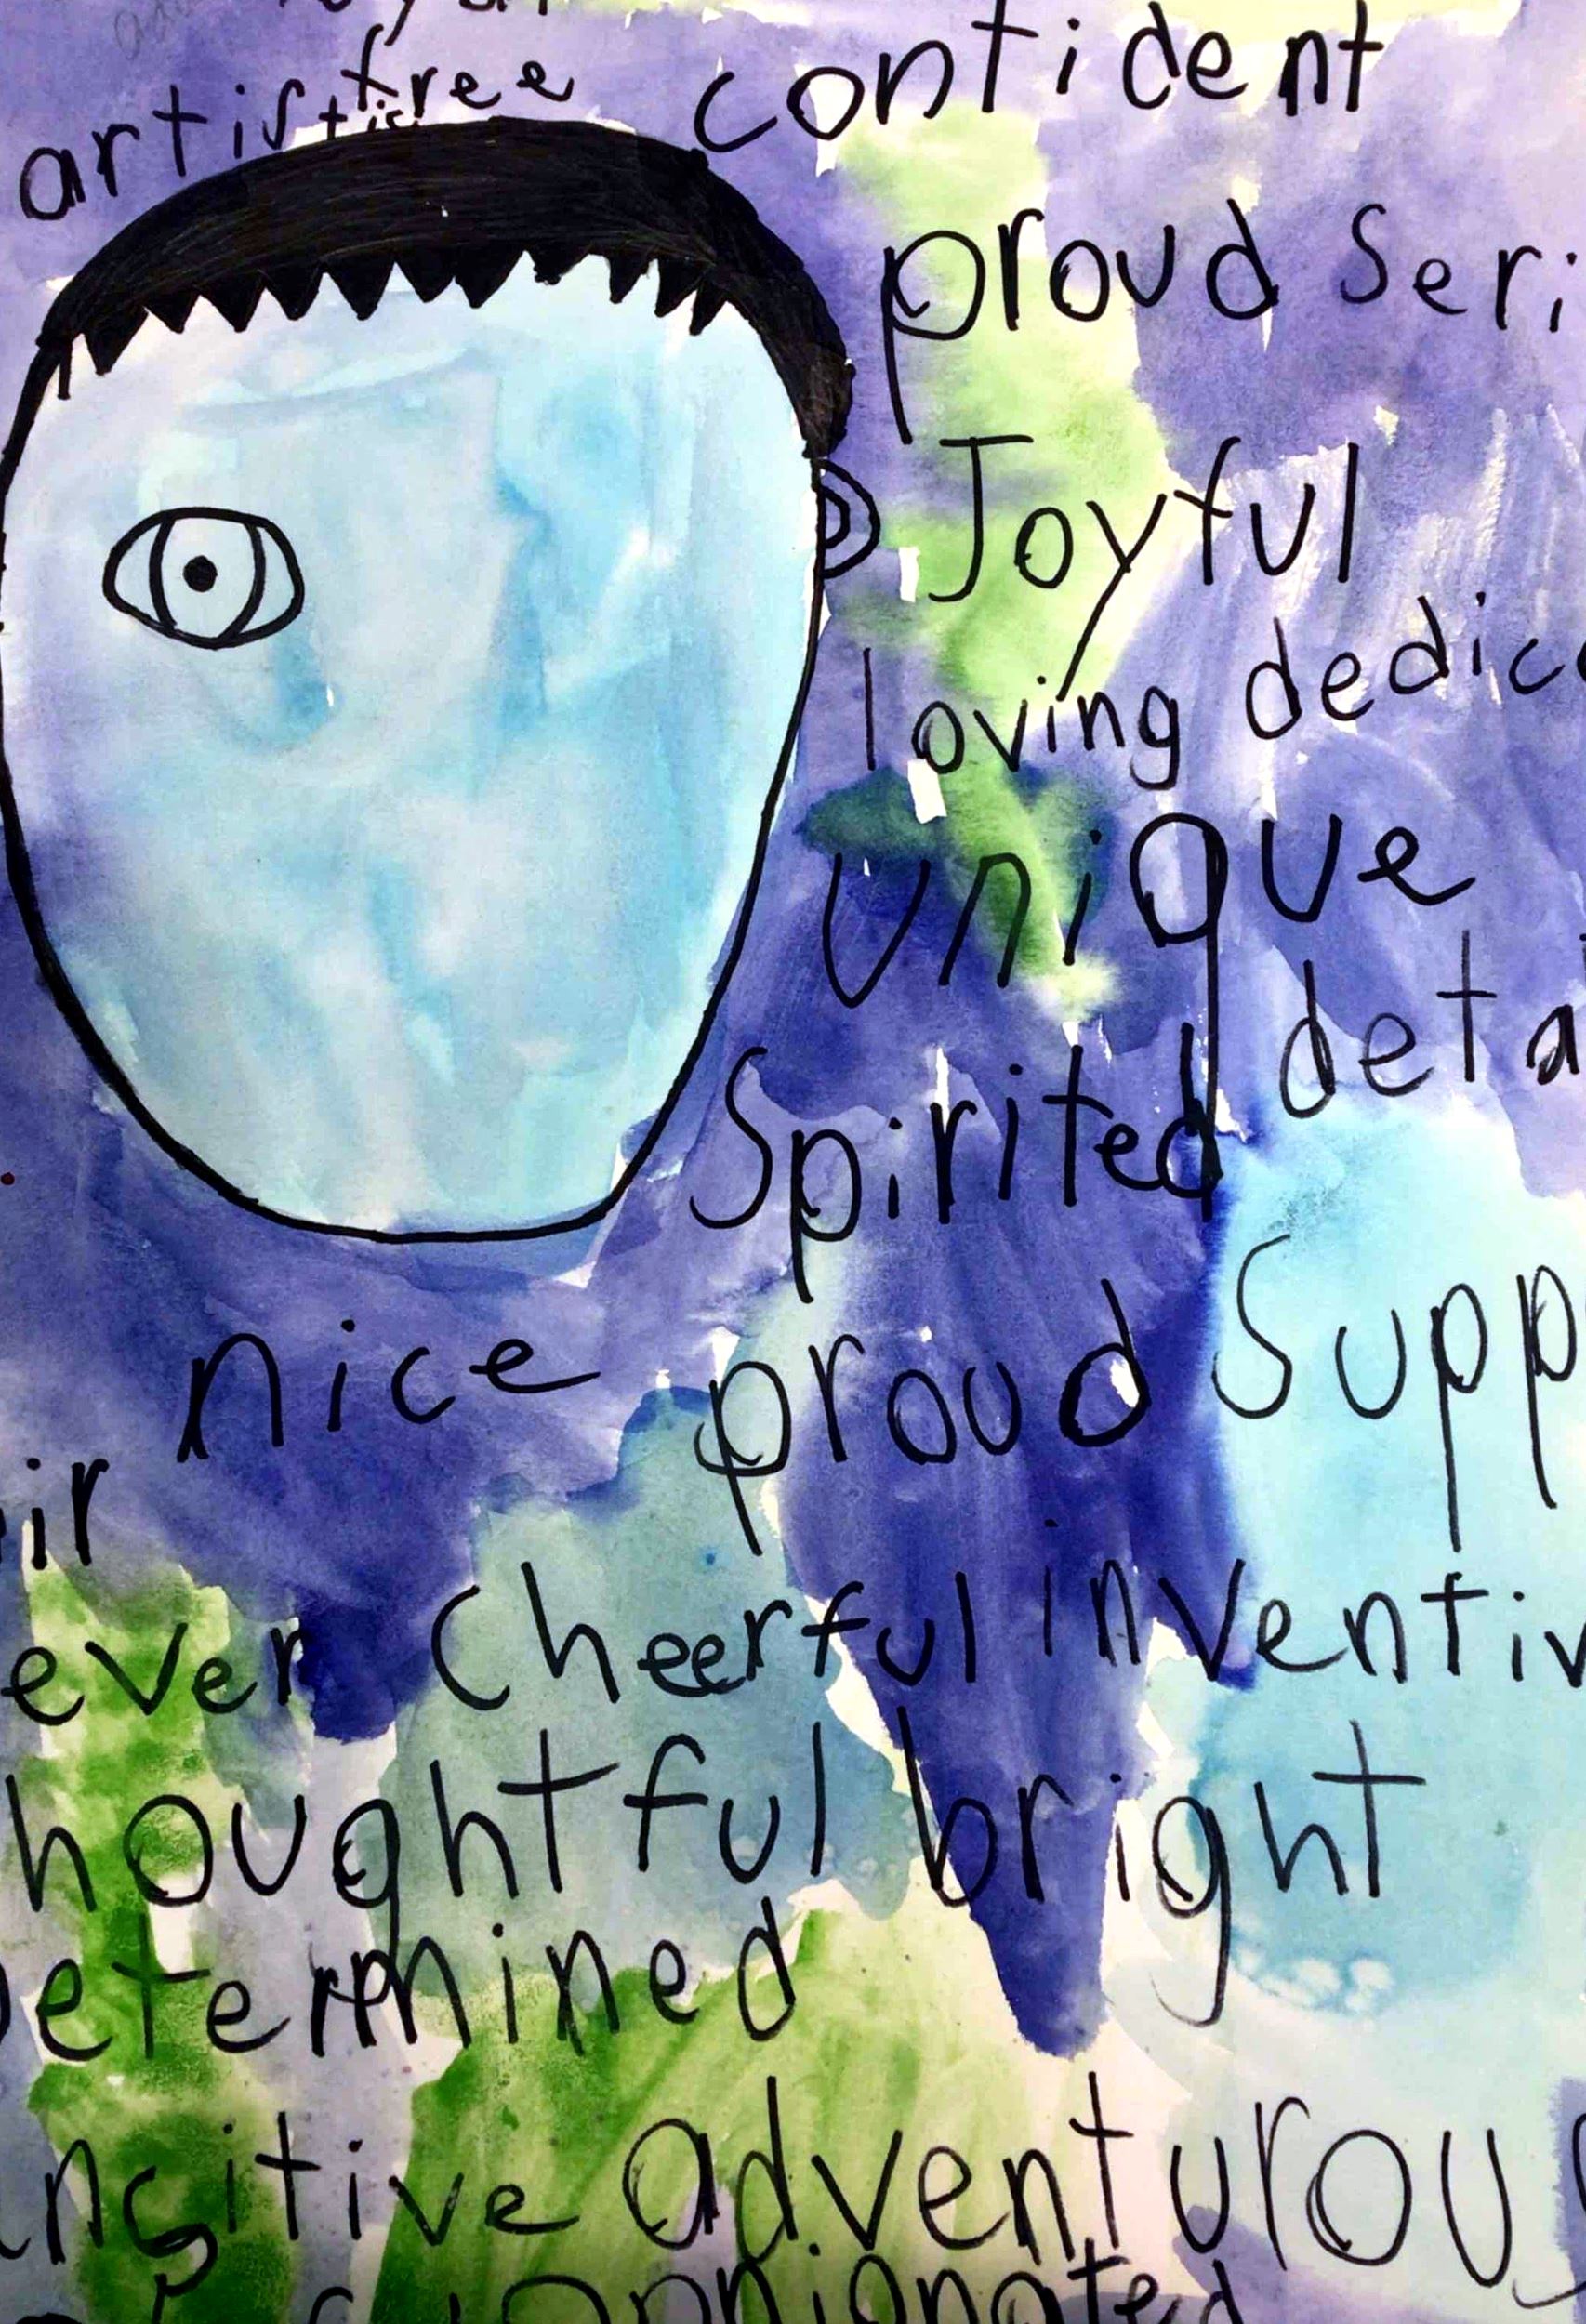 free confident
artistic
proud seri
Joyful
loving dedic
unique
deta
Spirited
nice proud Supp
ir
ever cheerful inventiv
houghtful bright
etermined
nsitive adventurou